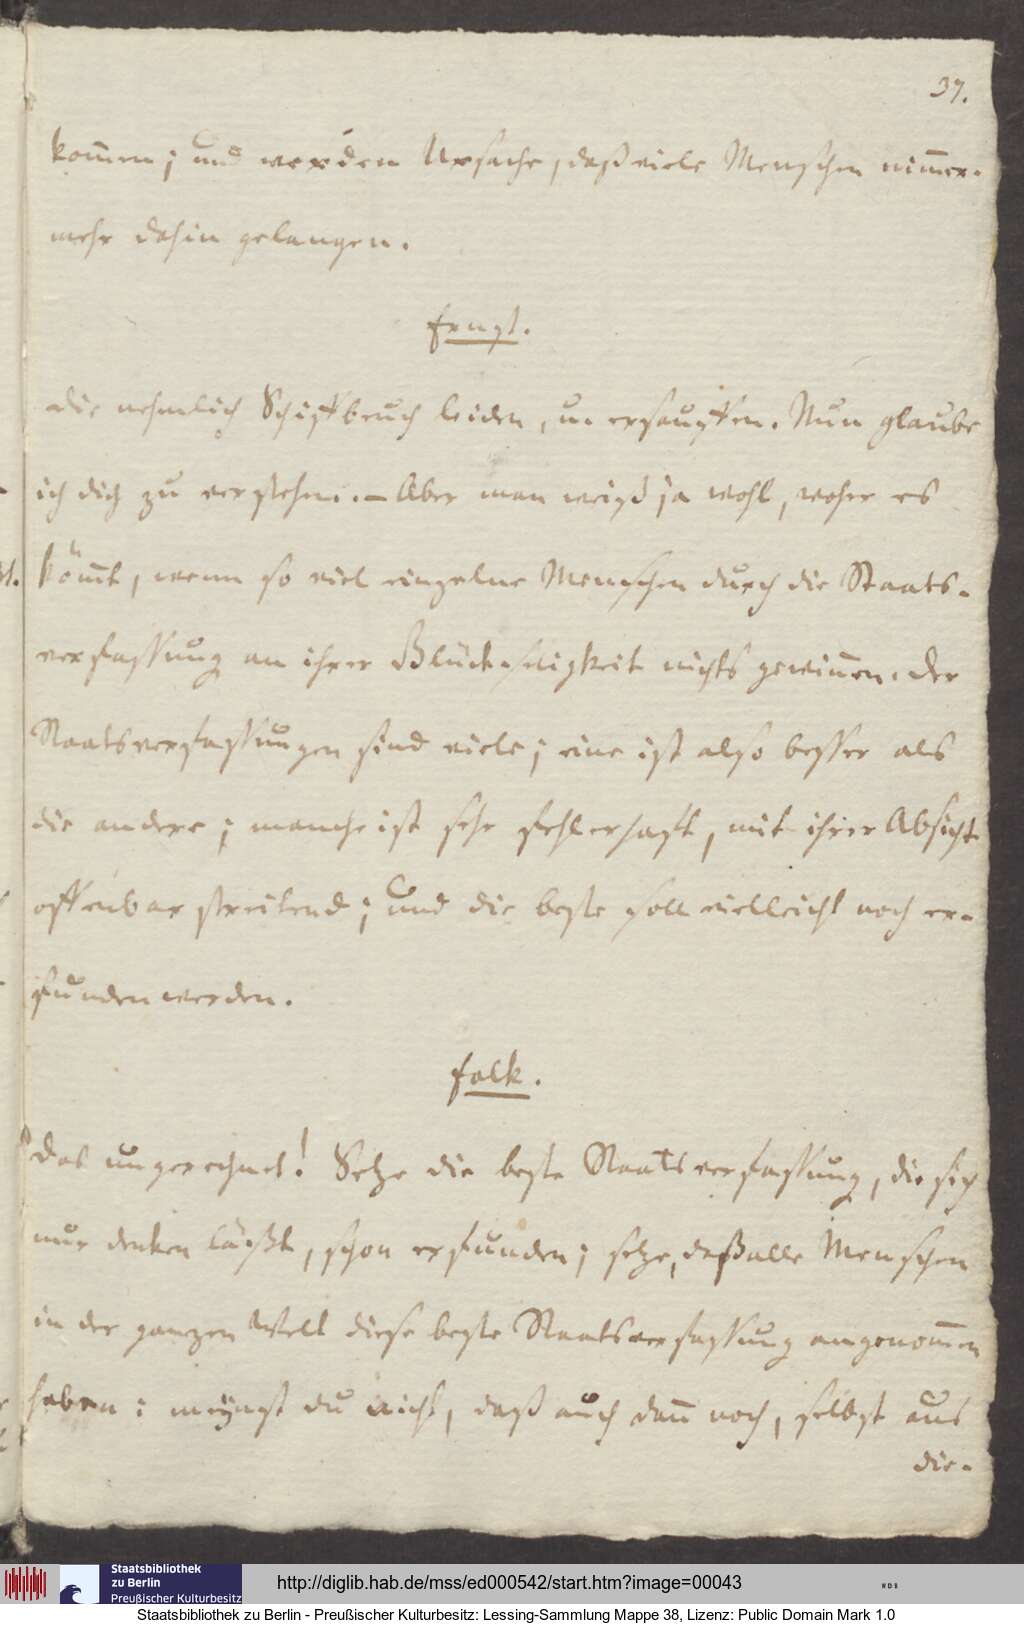 37.
kom̄en; und werden Ursache, daß viele Menschen nim̄er-
mehr dahin gelangen.
Ernst.
Die nehmlich Schiffbruch leiden, u. ersauffen. Nun glaube
ich dich zu verstehn. – Aber man weiß ja wohl, woher es
köm̄t, wenn so viel einzelne Menschen durch die Staats-
verfassung an ihrer Glückseligkeit nichts gewin̄en. Der
Staatsverfassungen sind viele; eine ist also besser als
die andere; manche ist sehr fehlerhaft, mit ihrer Absicht
offenbar streitend; und die beste soll vielleicht noch er-
funden werden.
Falk.
Das ungerechnet! Setze die beste Staatsverfassung, die sich
nur denken läßt, schon erfunden; setze, daß alle Menschen
in der ganzen Welt diese beste Staatsverfassung angenom̄en
haben: meynst du nicht, daß auch dan̄ noch, selbst aus
die-
Staatsbibliothek
zu Berlin
Preußischer Kulturbesitz
http://diglib.hab.de/mss/ed000542/start.htm?image=00043
Staatsbibliothek zu Berlin - Preußischer Kulturbesitz: Lessing-Sammlung Mappe 38, Lizenz: Public Domain Mark 1.0